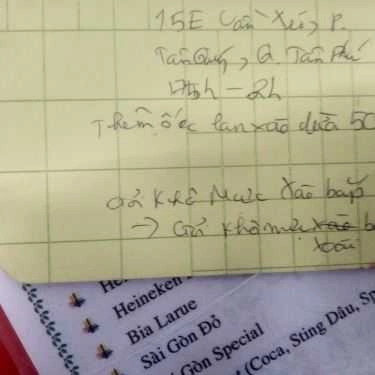 15E Cầu Xéo, P.
Tân Quý, Q. Tân Phú
h - 2h
Thêm ốc lan xào dừa 50
Khô Mực xào bắp
→ Khô mực xào
xoài
Heineken
Bia Larue
Sài Gòn Đỏ
Gòn Special
(Coca, Sting Dâu, Sp